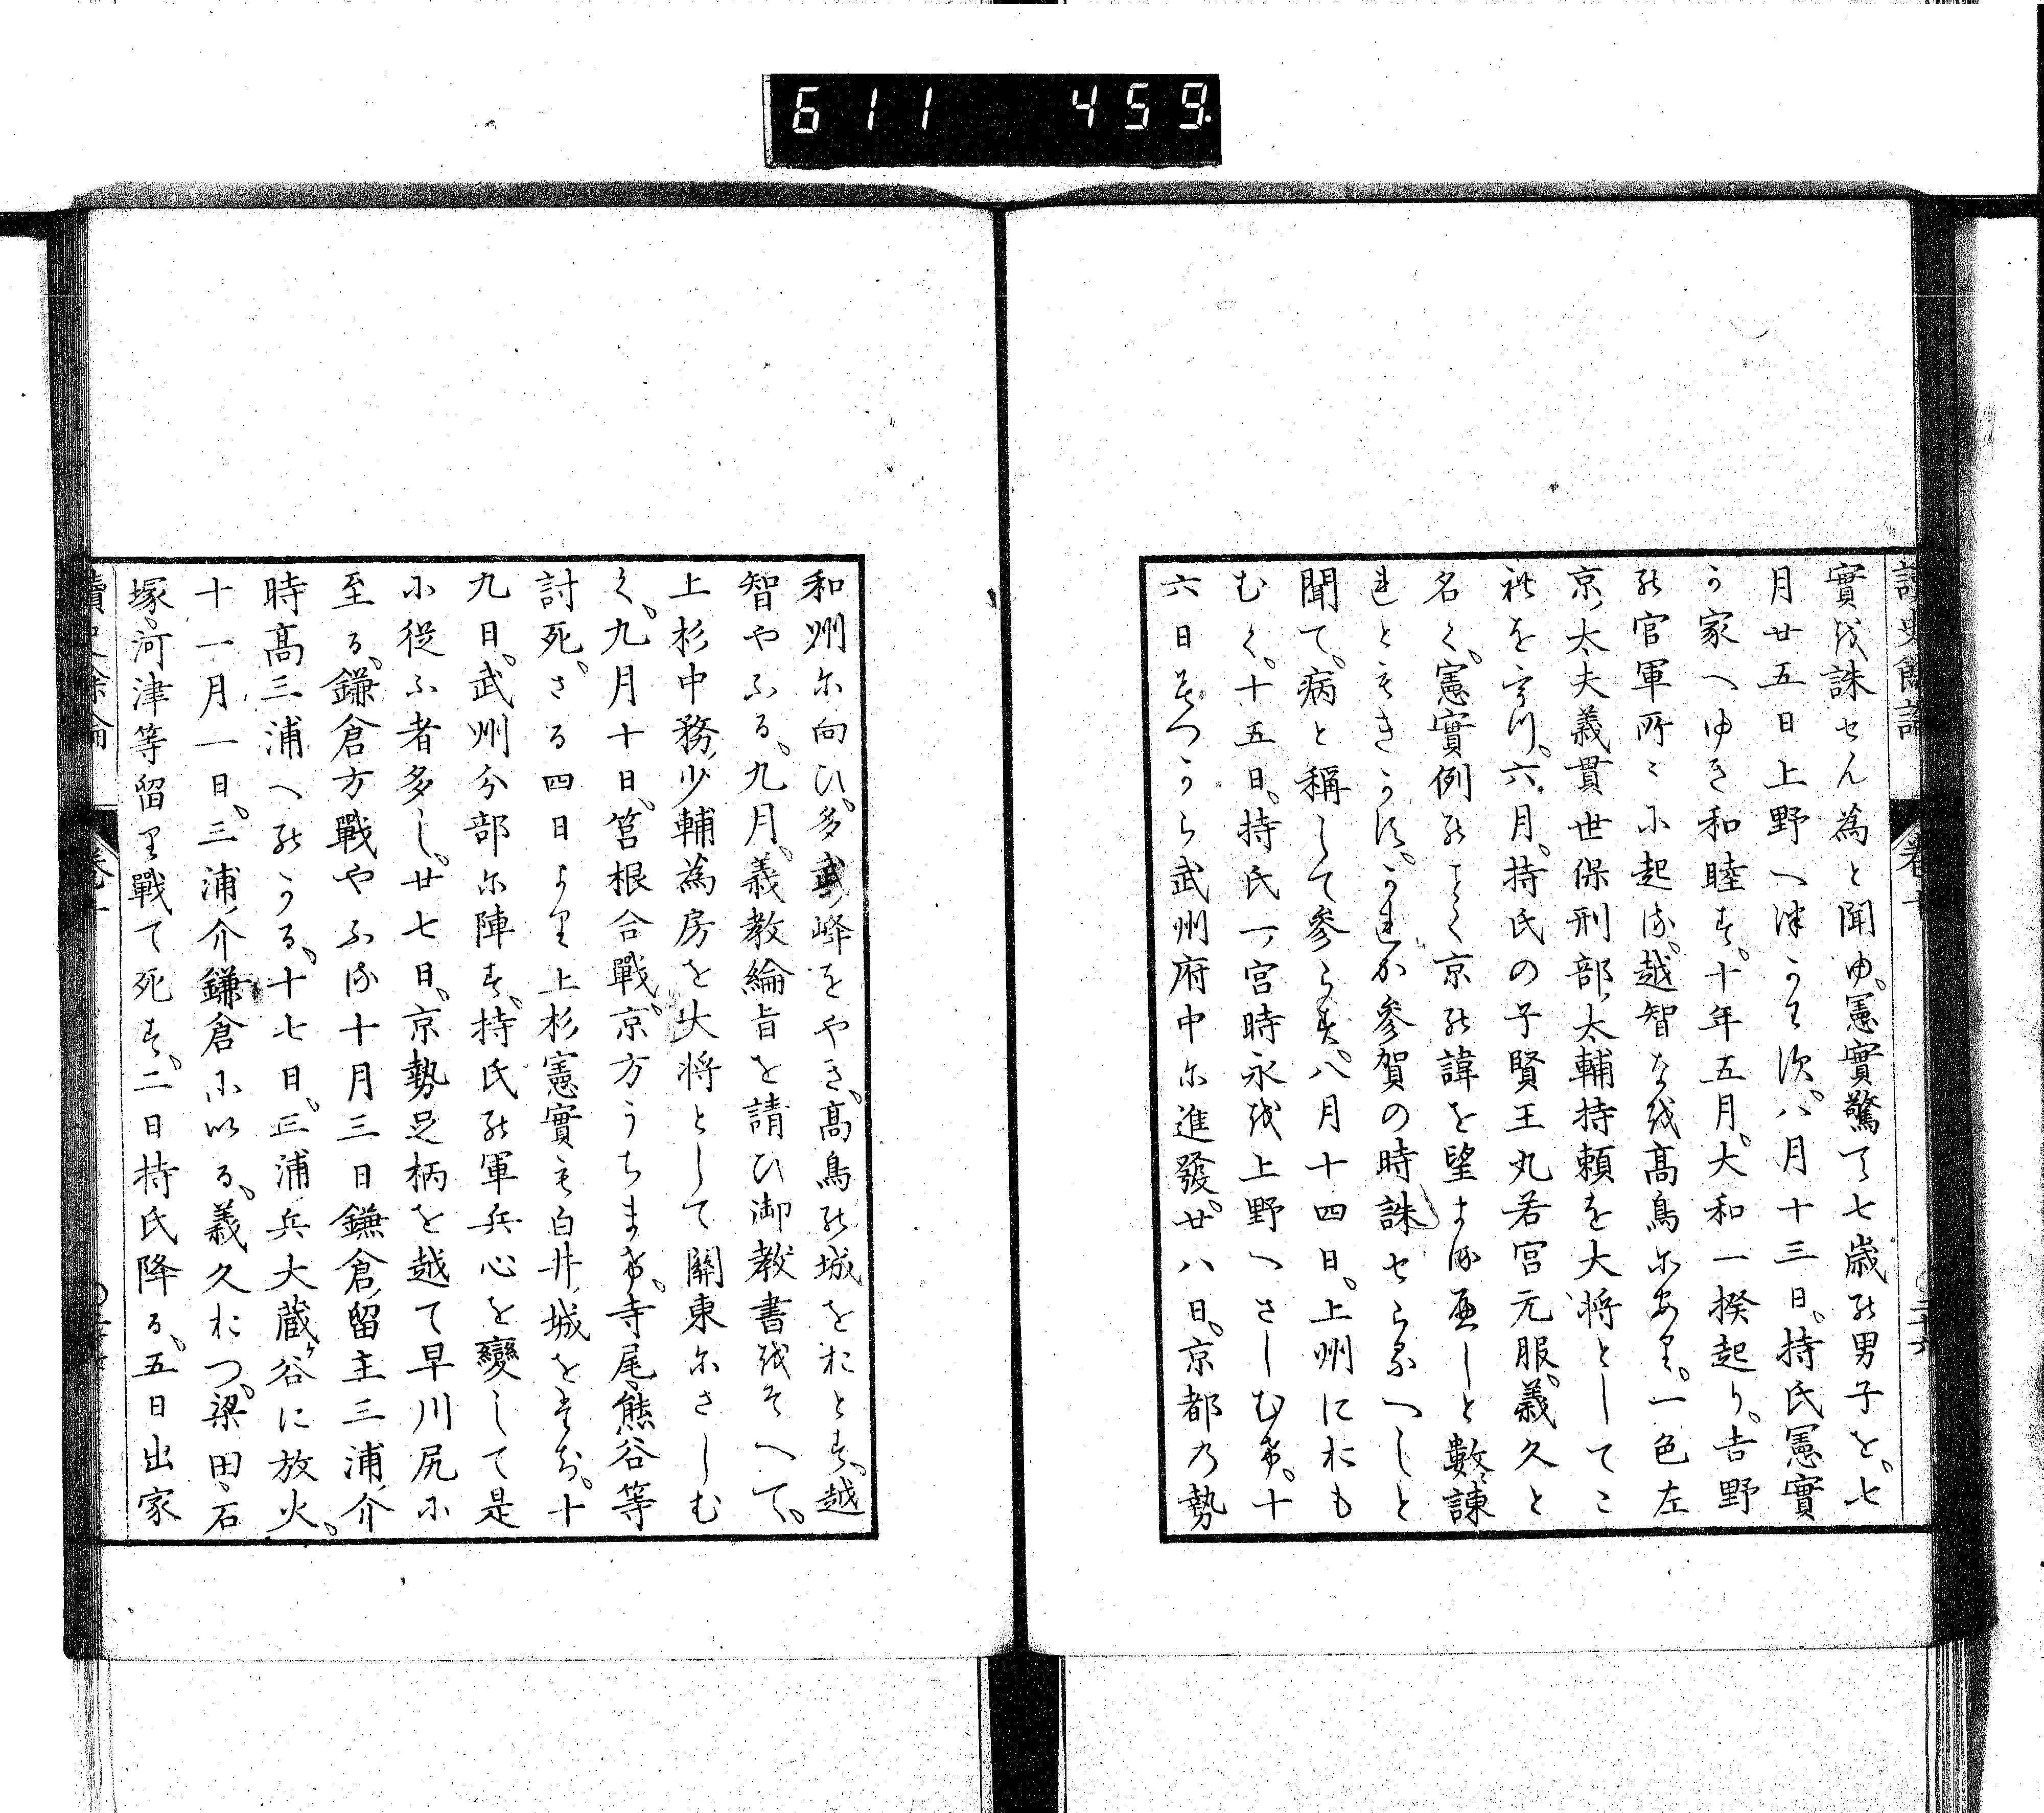 611 459
讀史餘論 卷十
實越誅せん為と聞ゆ。憲實驚て七歳能男子を。七
月廿五日上野へ津かハ須。八月十三日。持氏憲實
か家へゆき和睦す。十年五月。大和一揆起り。吉野
能官軍所ミ小起る。越智なを越高鳥尓あり。一色左
京太夫義貫世保刑部太輔持頼を大将としてこ
礼を宇川。六月。持氏の子賢王丸若宮元服。義久と
名く。憲實例能ことく京能諱を望まる遍しと數諫
連ときかす。これか参賀の時誅せらるへしと
聞て。病と稱して参らす。八月十四日。上州におも
むく。十五日。持氏一宮時永越上野へさしむけ。十
六日みつから武州府中尓進發。廿八日。京都乃勢
和州尓向ひ。多武峰をやき。高鳥能城をおとす。越
智やふる。九月。義教綸旨を請ひ御教書越そへて。
上杉中務少輔為房を大将として關東尓さしむ
く。九月十日。筥根合戰。京方うちまけ。寺尾。熊谷等
討死。さる四日より上杉憲實も白井城を出。十
九日。武州分部尓陣す。持氏能軍兵心を變して是
小従ふ者多し。廿七日。京勢足柄を越て早川尻小
至る。鎌倉方戰やふる十月三日鎌倉留主三浦介
時高三浦へ能かる。十七日。三浦兵大蔵ヶ谷に放火。
十一月一日。三浦介鎌倉小いる。義久おつ。梁田。石
塚。河津等留り戰て死す。二日持氏降る。五日出家
讀史餘論 卷十